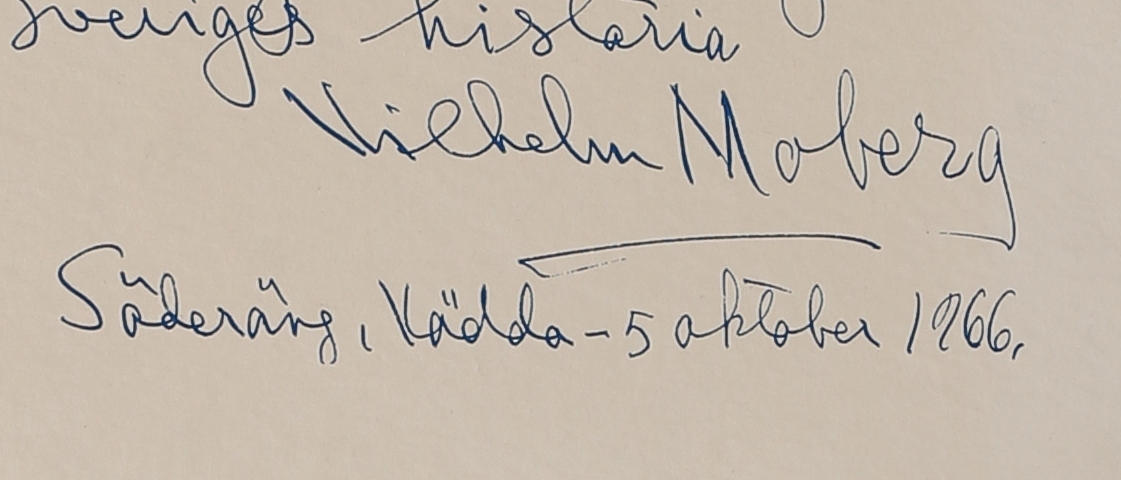 Sveriges historia
Vilhelm Moberg
Söderäng, Väddö – 5 oktober 1966.